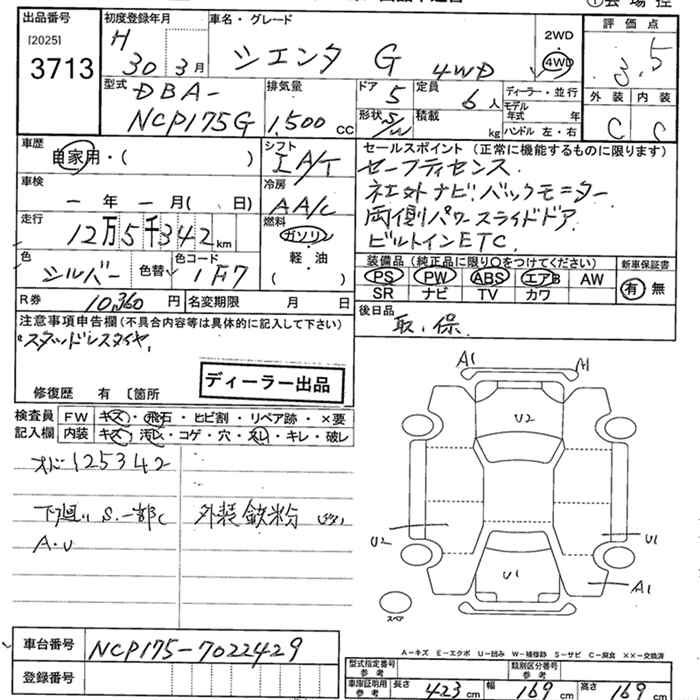 出品番号 初度登録年月 車名・グレード 評価点
[2025] H シエンタ G 4WD 2WD 3.5
3713 30年 3月 4WD
型式 排気量 ドア 定員 ディーラー・並行 外装 内装
DBA- 5 6人 モデル年式 年 C C
NCP175G 1,500 CC 形状 S/W 積載 kg ハンドル 左・右
車歴 シフト セールスポイント (正常に機能するものに限ります)
自家用・( ) IA/T セーフティセンス.
車検 冷房 ネエ外ナビ.バックモニター
ー年ー月( 日) AA/C 両側パワースライドドア.
走行 燃料 ビルトインETC.
12万5千342km ガソリン
色 色替 色コード 軽・油 装備品(純正品に限り○をつけてください) 新車保証書
シルバー 1F7 ( ) PS PW ABS エアB AW 有 無
R券 10,360円 名変期限 月 日 SR ナビ TV カワ
注意事項申告欄(不具合内容等は具体的に記入して下さい) 後日品
スタッドレスタイヤ. 取.保.
ディーラー出品
修復歴 有 〔箇所
検査員 FW キズ・飛石・ヒビ割・リペア跡・×要
記入欄 内装 キズ・汚レ・コゲ・穴・スレ・キレ・破レ
オド125342
下廻りS.一部C 外装鉄粉
A・U
A1
U2
U2 U1
U1 A1
スペア
車台番号 NCP175-7022429
登録番号
A−キズ E−エクボ U−凹み W−補修跡 S−サビ C−腐食 ××−交換済
型式指定番号 参考 類別区分番号 参考
車庫証明用 参考 長さ 423 cm 幅 169 cm 高さ 169 cm